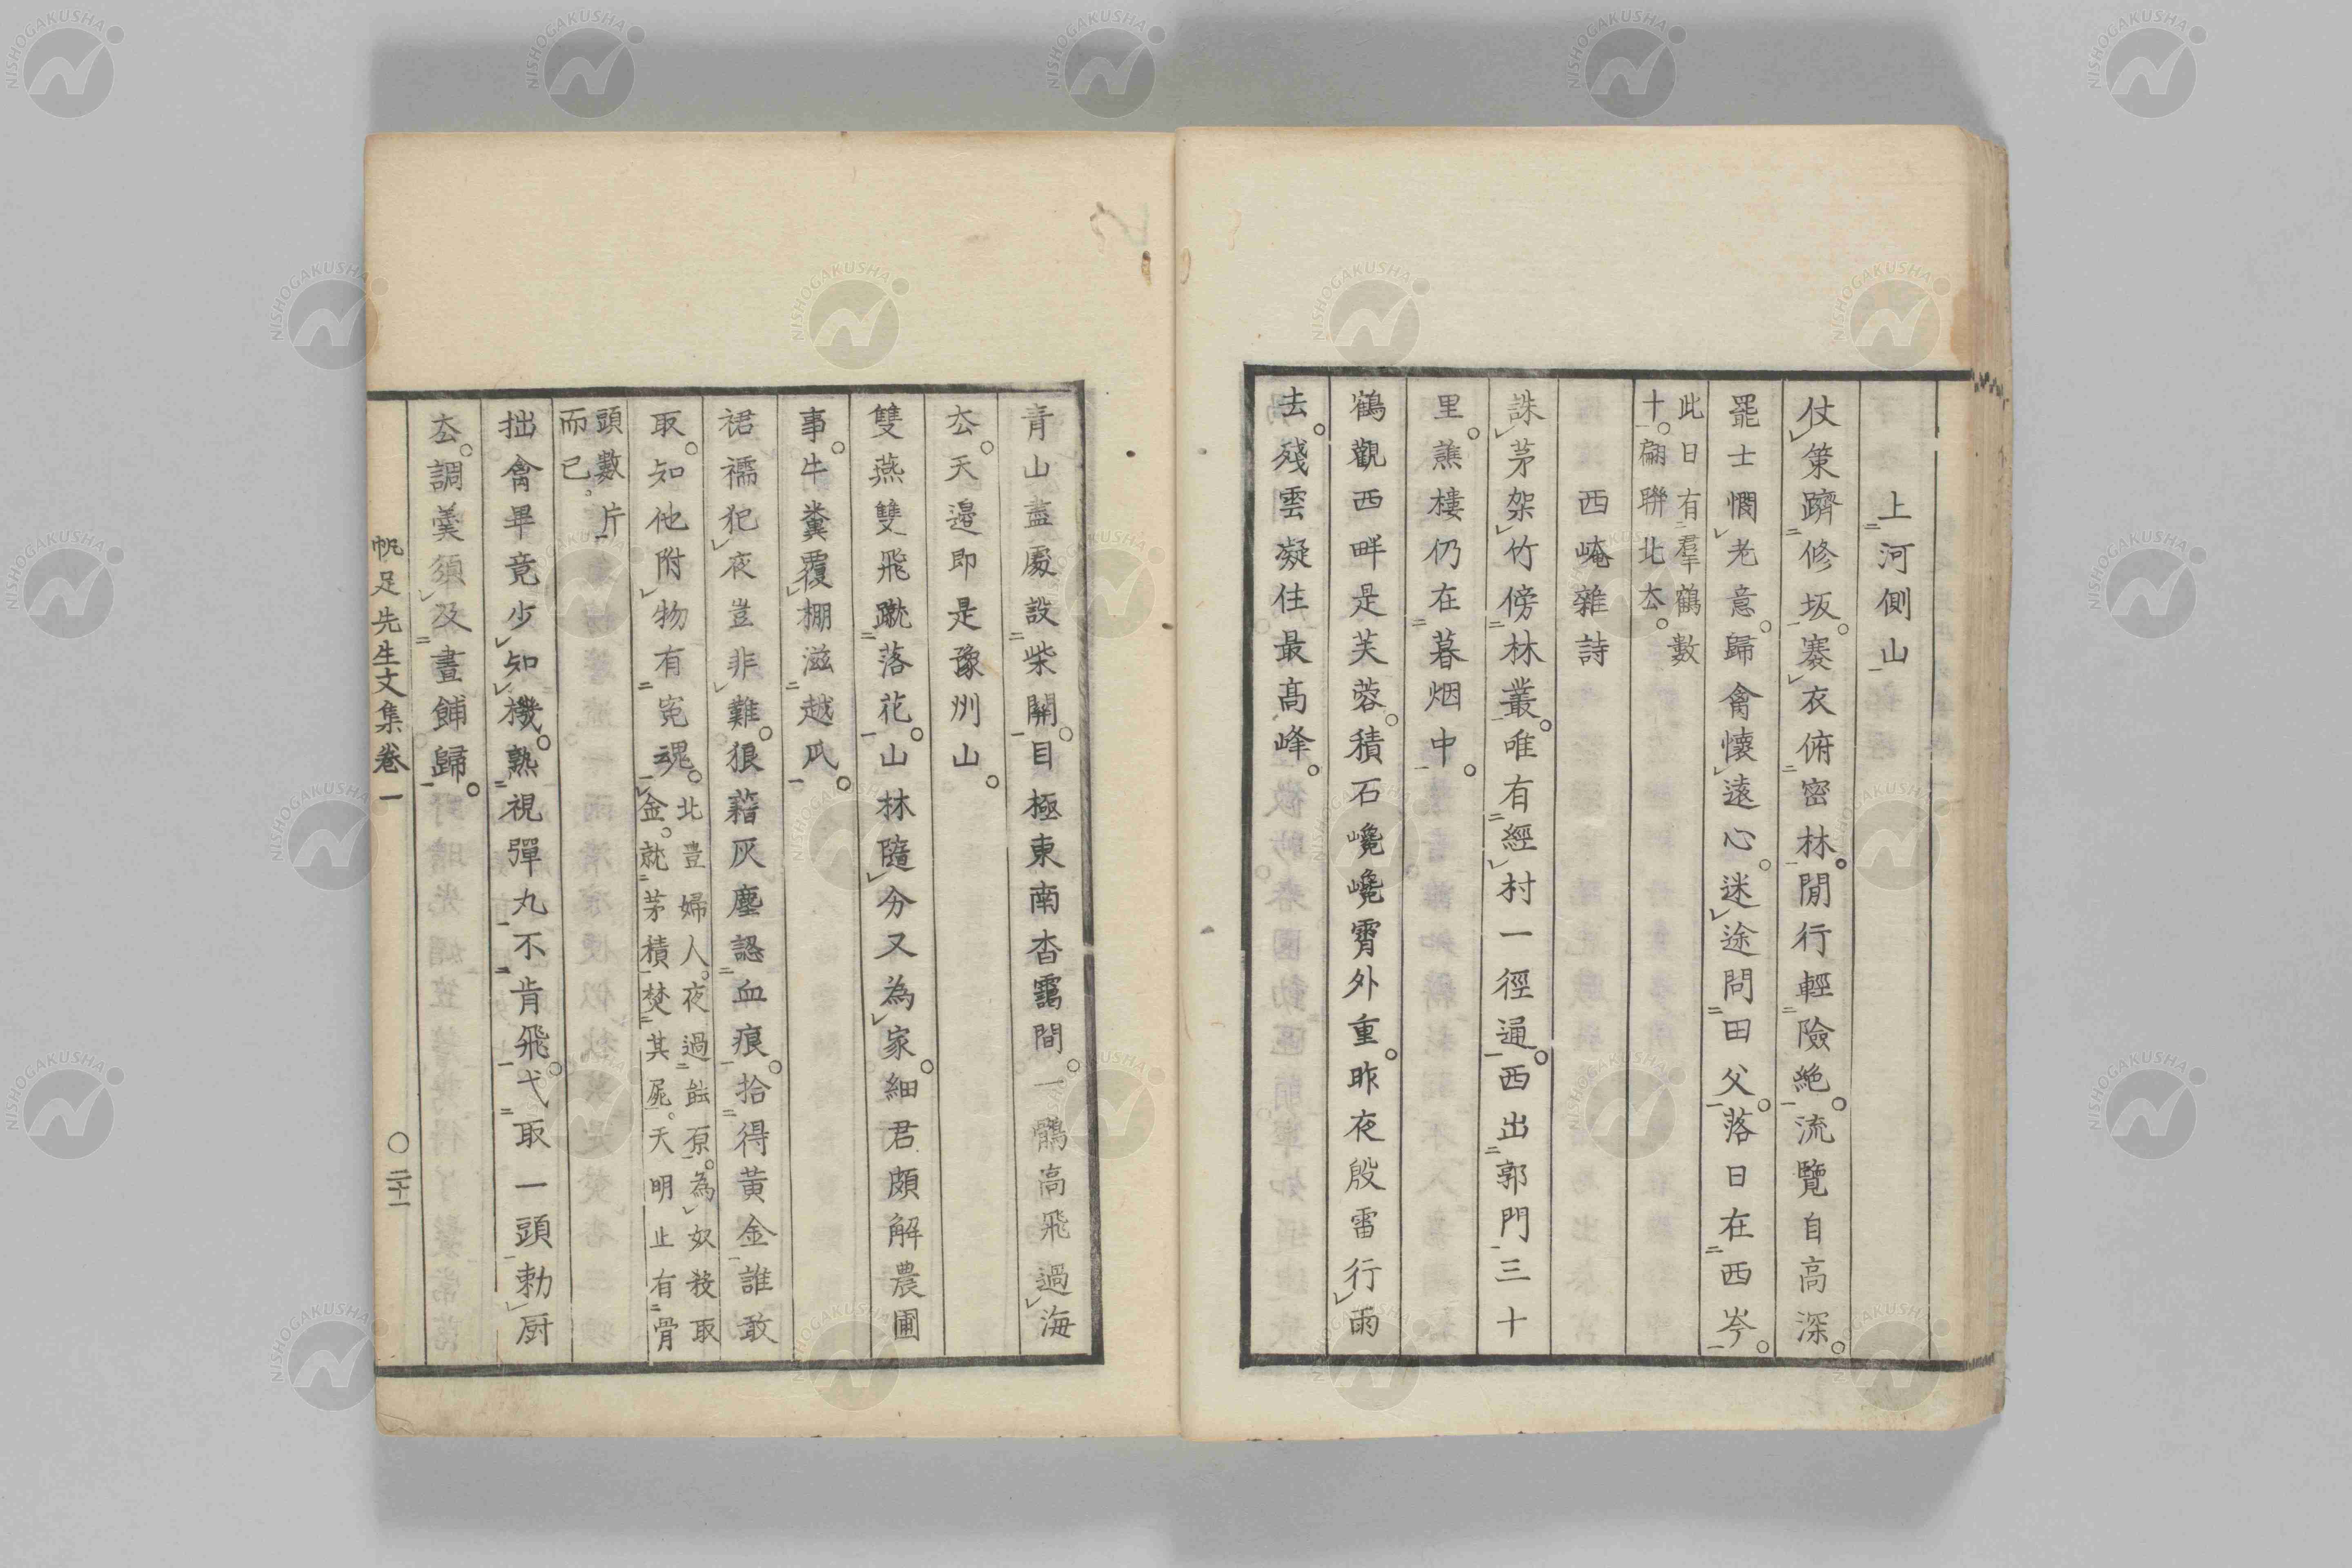 上河側山
仗策躋修坂。褰衣俯密林。閒行輕險絶。流覽自高深。
罷士憫老意。歸禽懷遠心。迷途問田父。落日在西岑。
此日有羣鶴數
十。翩聯北厺。
西崦雜詩
誅茅架竹傍林叢。唯有經村一徑通。西出郭門三十
里。譙樓仍在暮烟中。
鶴觀西畔是芙蓉。積石巉巉霄外重。昨夜殷雷行雨
去。殘雲凝住最高峰。
青山盡處設柴關。目極東南杳靄間。一鶻高飛過海
厺。天邉即是豫州山。
雙燕雙飛蹴落花。山林隨分又為家。細君頗解農圃
事。牛糞覆棚滋越瓜。
裙襦犯夜豈非難。狼藉灰塵認血痕。拾得黃金誰敢
取。知他附物有寃魂。
北豊婦人。夜過餀原。為奴殺取
金。就茅積焚其屍。天明止有骨
頭數片
而已。
拙禽畢竟少知機。熟視彈丸不肯飛。弋取一頭勅厨
厺。調羹須及晝餔歸。
帆足先生文集卷一
〇二十一
NISHOGAKUSHA